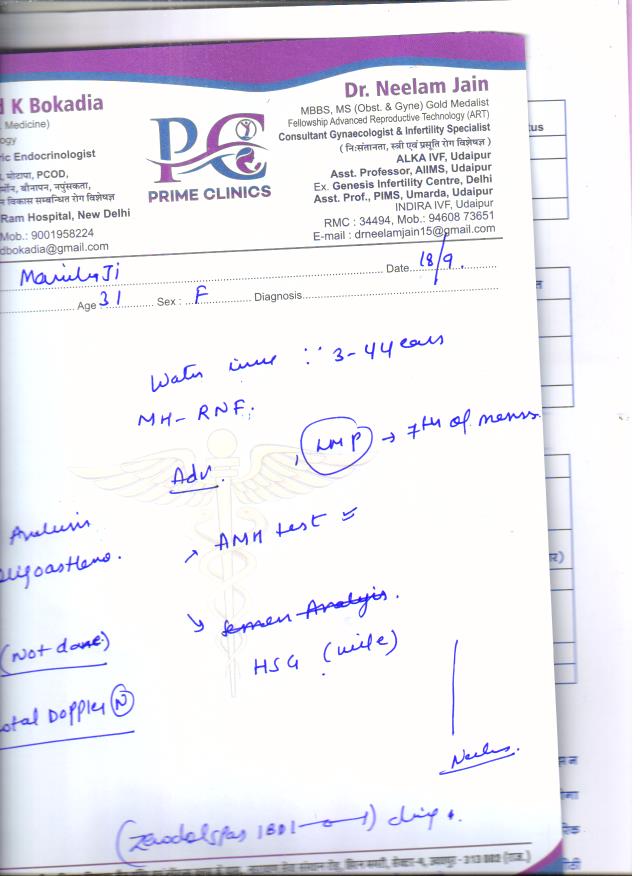 d K Bokadia
Medicine)
ogy
ric Endocrinologist
, मोटापा, PCOD,
र्मोन, बौनापन, नपुंसकता,
न विकास सम्बन्धित रोग विशेषज्ञ
Ram Hospital, New Delhi
Mob.: 9001958224
dbokadia@gmail.com
PC
PRIME CLINICS
Dr. Neelam Jain
MBBS, MS (Obst. & Gyne) Gold Medalist
Fellowship Advanced Reproductive Technology (ART)
Consultant Gynaecologist & Infertility Specialist
( निःसंतानता, स्त्री एवं प्रसूति रोग विशेषज्ञ )
ALKA IVF, Udaipur
Asst. Professor, AIIMS, Udaipur
Ex. Genesis Infertility Centre, Delhi
Asst. Prof., PIMS, Umarda, Udaipur
INDIRA IVF, Udaipur
RMC : 34494, Mob.: 94608 73651
E-mail : drneelamjain15@gmail.com
Ji Date 18/9.
Age : 31 Sex : F Diagnosis
3-4 years
MH- RNF.
LMP → 7th of menses.
Adv.
Analysis
→ AMH test
oligoastheno.
Semen Analysis.
(Not done)
HSG (wife)
otal Doppler (N)
tus